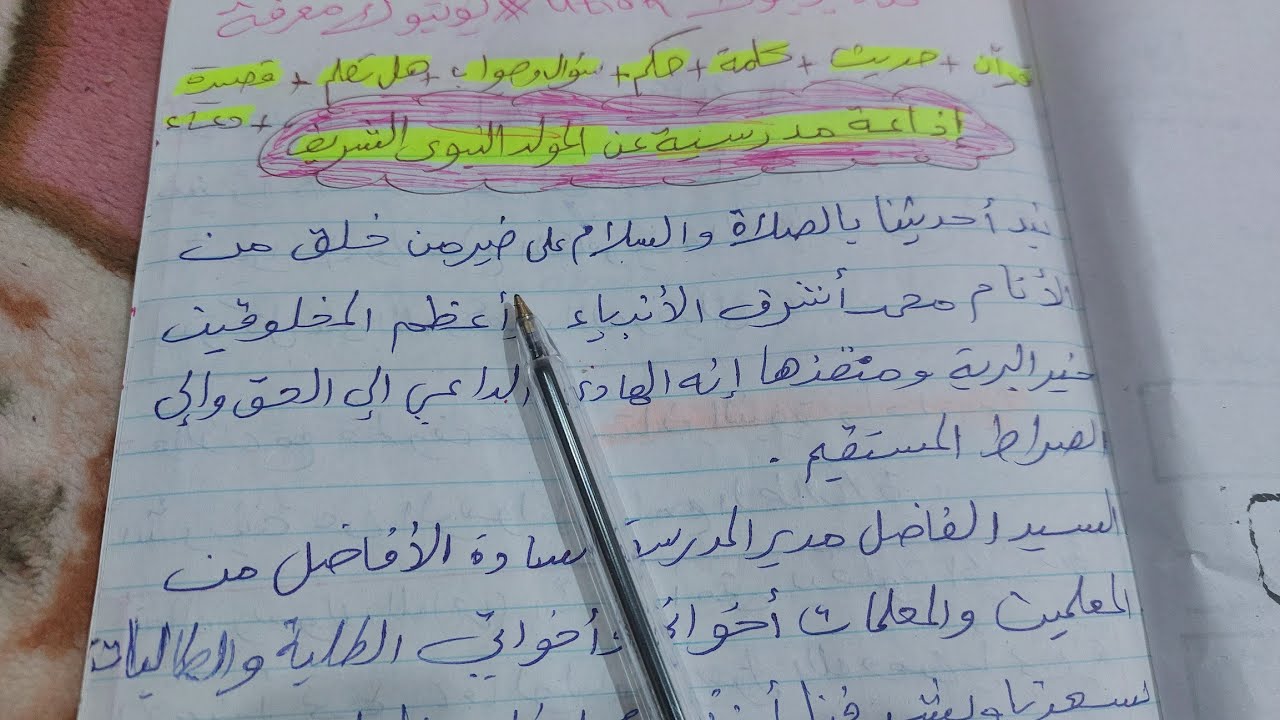 #يوتيوك معرفة
قرآن + حديث + كلمة + حكم + سؤال وجواب + هل تعلم + قصيدة
+ دعاء
إذاعة مدرسية عن المولد النبوى الشريف
نبدأ حديثنا بالصلاة والسلام على خير من خلق من
الأنام محمد أشرف الأنبياء أعظم المخلوقين
خير البرية ومنقذها إنه الهادى الداعي إلي الحق وإلي
الصراط المستقيم .
السيد الفاضل مدير المدرسة السادة الأفاضل من
المعلمين والمعلمات أخواني وأخواتي الطلبة والطالبات